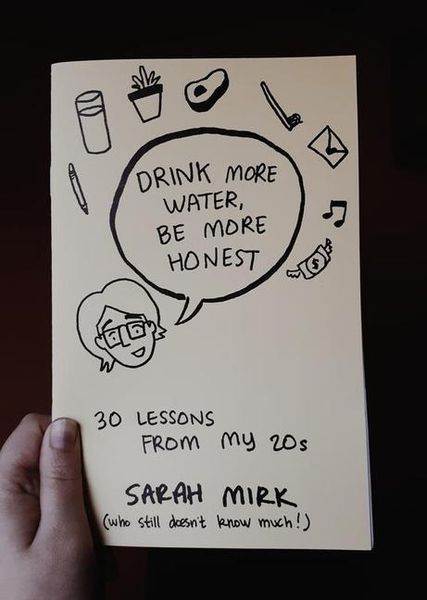 DRINK MORE
WATER,
BE MORE
HONEST
$
30 LESSONS
FROM MY 20s
SARAH MIRK
(who still doesn't know much!)